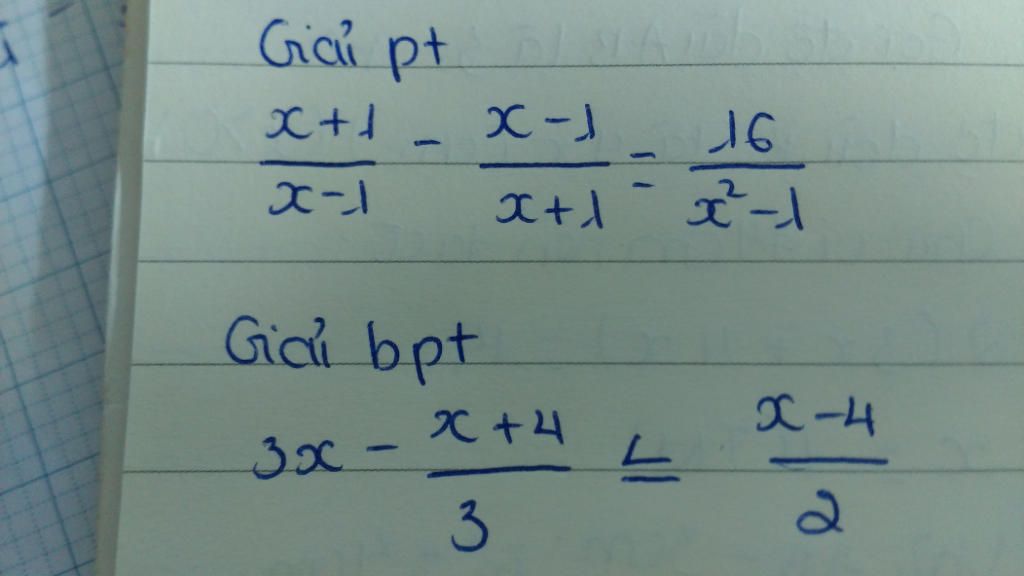 Giải pt
x+1/x-1 - x-1/x+1 = 16/x²-1
Giải bpt
3x - x+4/3 ≤ x-4/2